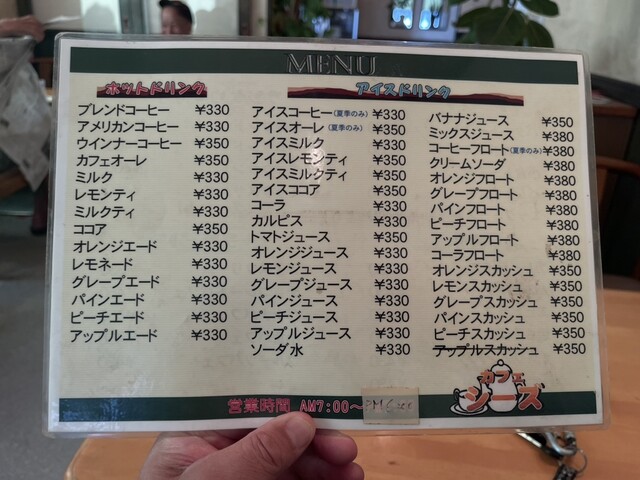 MENU
ホットドリンク
ブレンドコーヒー ¥330
アメリカンコーヒー ¥330
ウインナーコーヒー ¥350
カフェオーレ ¥350
ミルク ¥330
レモンティ ¥330
ミルクティ ¥330
ココア ¥350
オレンジエード ¥330
レモネード ¥330
グレープエード ¥330
パインエード ¥330
ピーチエード ¥330
アップルエード ¥330
アイスドリンク
アイスコーヒー(夏季のみ) ¥330
アイスオーレ(夏季のみ) ¥350
アイスミルク ¥330
アイスレモンティ ¥350
アイスミルクティ ¥350
アイスココア ¥350
コーラ ¥330
カルピス ¥330
トマトジュース ¥350
オレンジジュース ¥330
レモンジュース ¥330
グレープジュース ¥330
パインジュース ¥330
ピーチジュース ¥330
アップルジュース ¥330
ソーダ水 ¥330
バナナジュース ¥350
ミックスジュース ¥380
コーヒーフロート(夏季のみ) ¥380
クリームソーダ ¥380
オレンジフロート ¥380
グレープフロート ¥380
パインフロート ¥380
ピーチフロート ¥380
アップルフロート ¥380
コーラフロート ¥380
オレンジスカッシュ ¥350
レモンスカッシュ ¥350
グレープスカッシュ ¥350
パインスカッシュ ¥350
ピーチスカッシュ ¥350
アップルスカッシュ ¥350
営業時間 AM7:00~
カフェ
シーズ